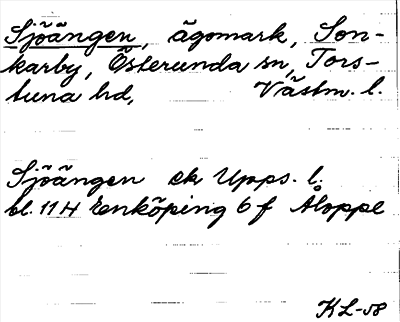 Sjöängen, ägomark, Son-
karby, Österunda sn, Tors-
tuna hd, Västm. l.
Sjöängen ek Upps. l.
bl. 114 Enköping 6 f Åloppe
KL-58